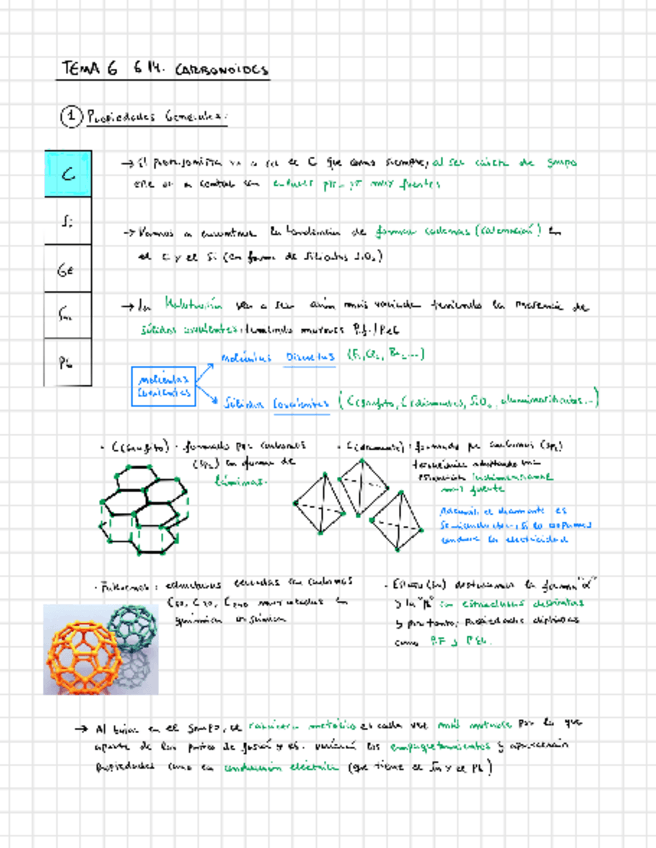 TEMA 6 G14. CARBONOIDES
1 Propiedades Generales:
C
Si
Ge
Sn
Pb
→ El protagonista va a ser el C que como siempre, al ser cabeza de grupo
este va a contar con enlaces pπ-pπ muy fuertes
→ Vamos a encontrar la tendencia de formar cadenas (catenación) en
el C y el Si (en forma de silicatos SiO₂)
→ La va a ser aún más variada teniendo la presencia de
sólidos covalentes, teniendo mayores P.f. / P.eb
moléculas covalentes
Moléculas Discretas (F₂, Cl₂, Br₂, ...)
Sólidos Covalentes (C(grafito), C(diamante), SiO₂, aluminosilicatos...)
· C(grafito) · formado por carbonos
(sp₂) en forma de
láminas.
· C(diamante) · formado por carbonos (sp₃)
estructura tridimensional
muy fuente
Además, el diamante es
semiconductor, si lo
conduce la electricidad
· Fulerenos: estructuras cerradas con carbonos
C₆₀, C₇₀, C₂₄₀ muy usados en
química orgánica
· Estaño (Sn) destacamos la forma "α"
y la "β" con estructuras distintas
y por tanto, propiedades distintas
como P.F y P.Eb.
→ Al bajar en el grupo, el carácter metálico es cada vez más notable por lo que
aparte de los puntos de fusión y eb. variarán los empaquetamientos y aparecerán
propiedades como la conducción eléctrica (que tiene el Sn y el Pb)